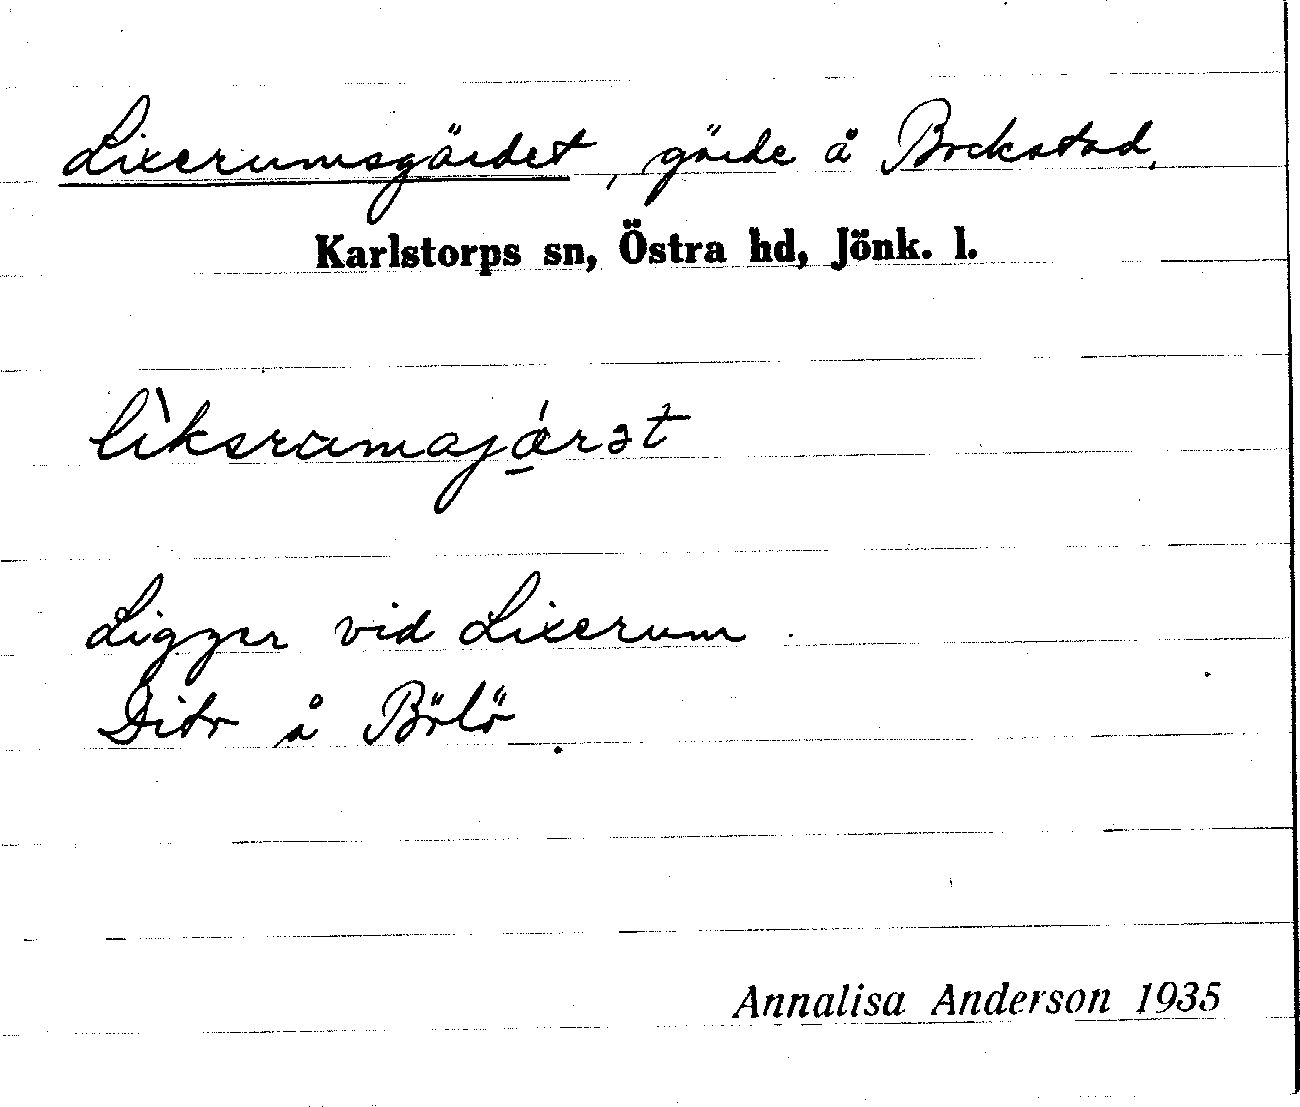 Lixerumsgärdet, gärde å Bockstad.
Karlstorps sn, Östra hd, Jönk. l.
Ligger vid Lixerum.
Dito å Bölö.
Annalisa Anderson 1935